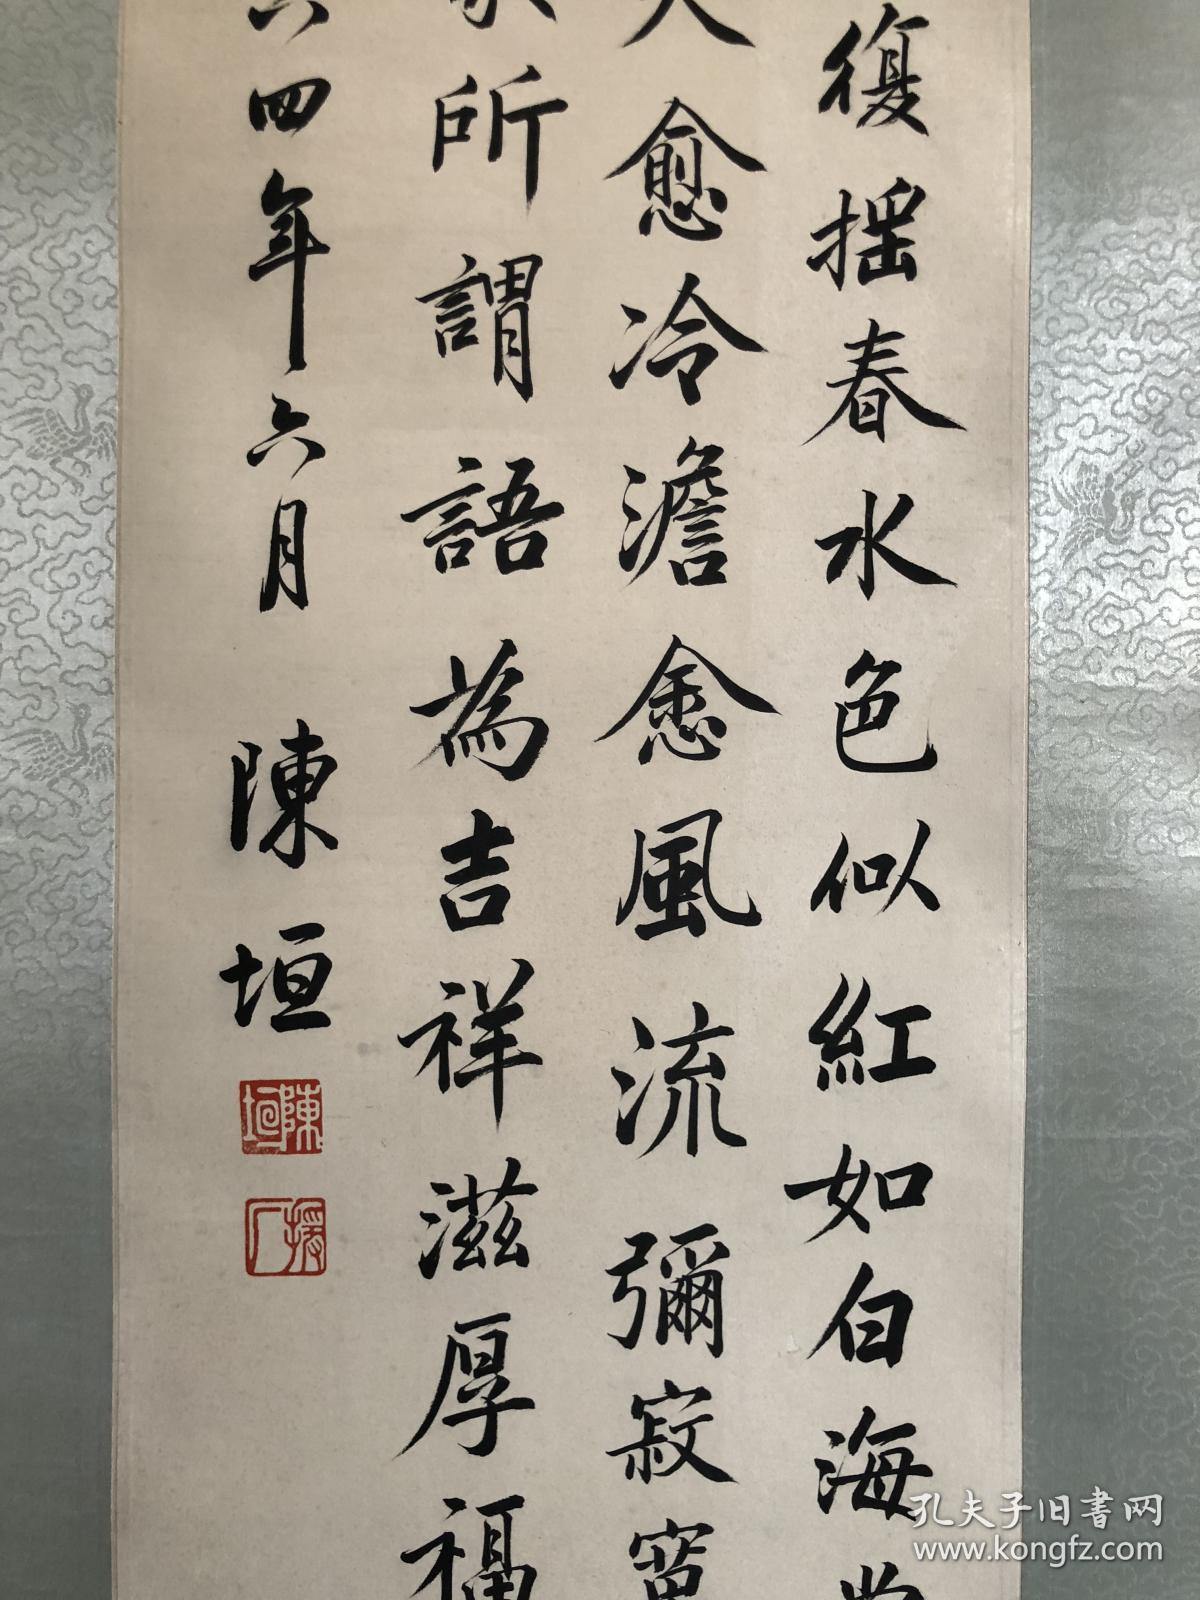 復揺春水色似紅如白海
愈冷澹愈風流彌寂寞
所謂語為吉祥滋厚福
四年六月 陳垣
陳垣
援厂
孔夫子旧书网
www.kongfz.com